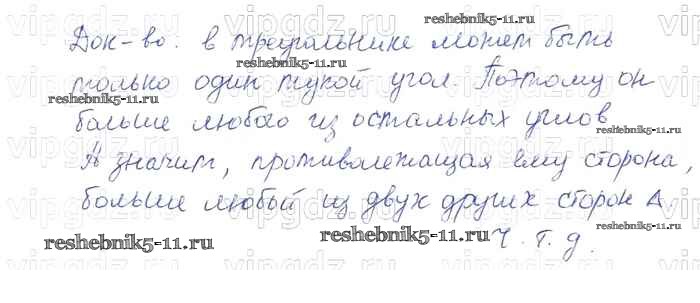 Док-во. в треугольнике может быть
только один тупой угол. Поэтому он
больше любого из остальных углов
А значит, противолежащая ему сторона,
больше любый из двух других сторон Δ.
ч. т. д.
reshebnik5-11.ru
reshebnik5-11.ru
reshebnik5-11.ru
reshebnik5-11.ru
reshebnik5-11.ru
reshebnik5-11.ru
vipgdz.ru